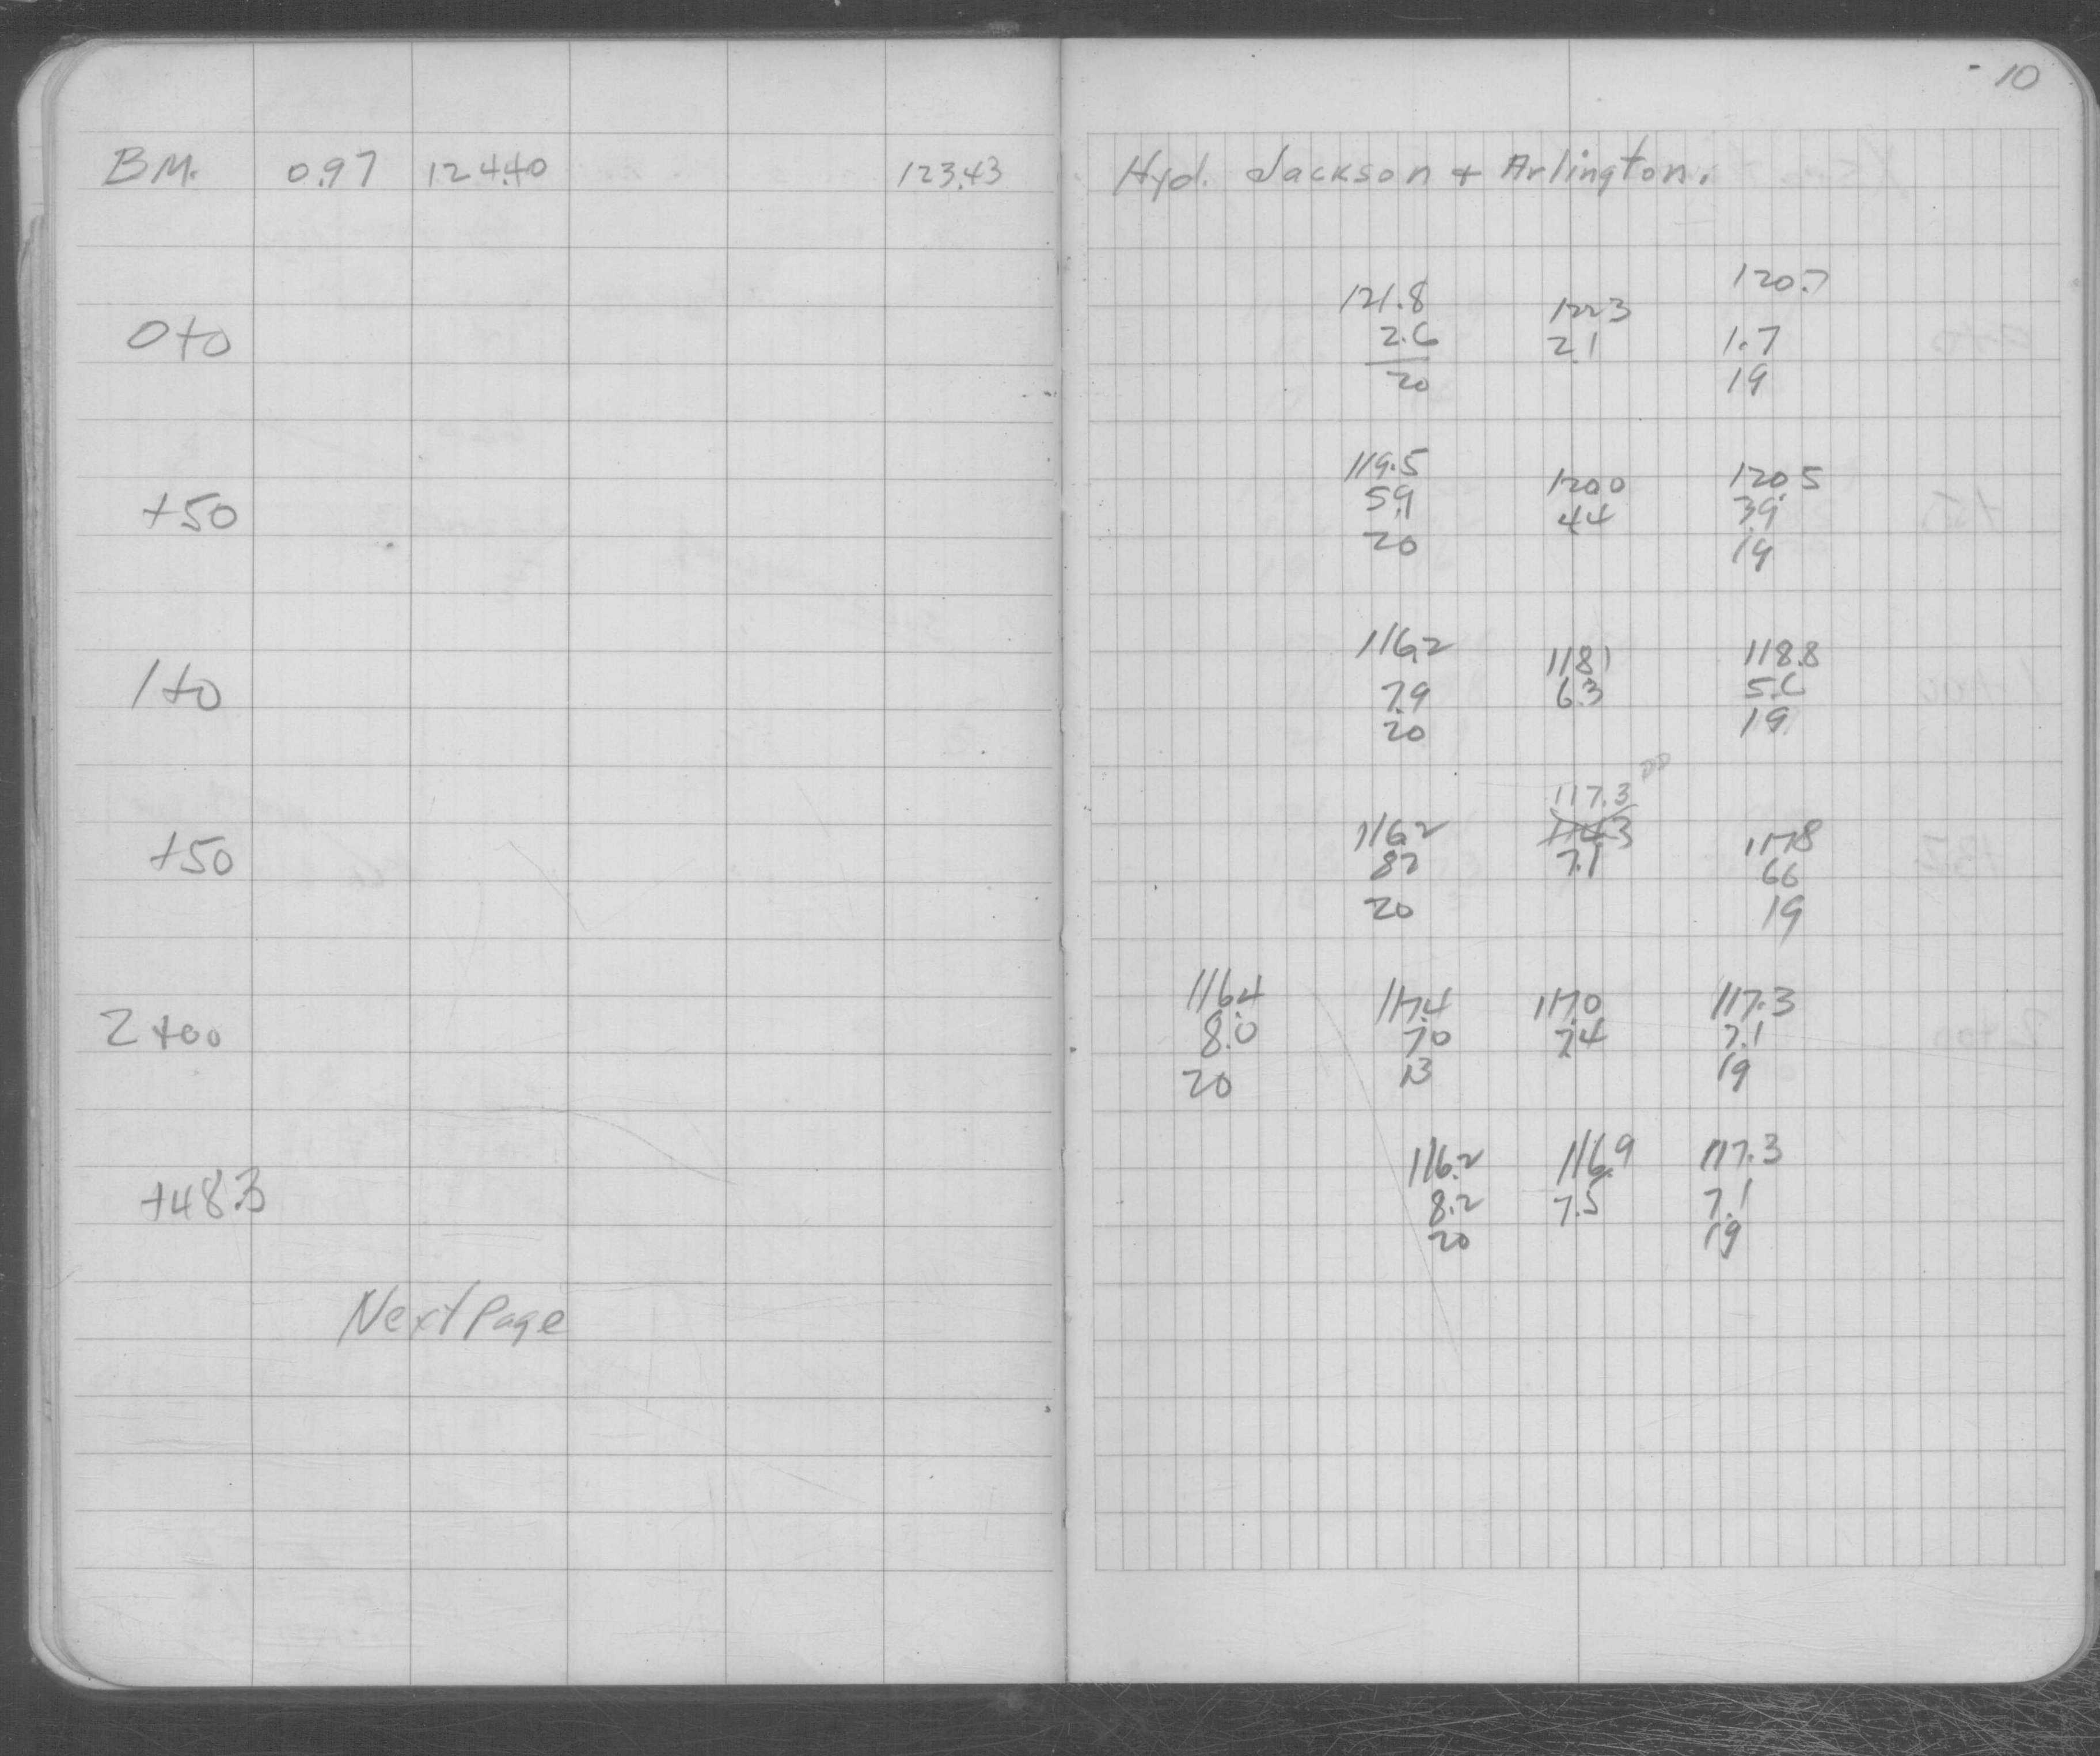 10
BM. 0.97 124.40 123.43 Hyd. Jackson + Arlington.
120.7
121.8 122.3
0+0 2.6 2.1 1.7
20 19
119.5 120.0 120.5
+50 5.9 4.4 3.9
20 19
116.2 118.1 118.8
1+0 7.9 6.3 5.6
20 19
117.3
116.2 114.3 117.8
+50 8.2 7.1 6.6
20 19
116.4 117.4 117.0 117.3
2+00 8.0 7.0 7.4 7.1
20 13 19
116.2 116.9 117.3
+48.3 8.2 7.5 7.1
20 19
Next Page